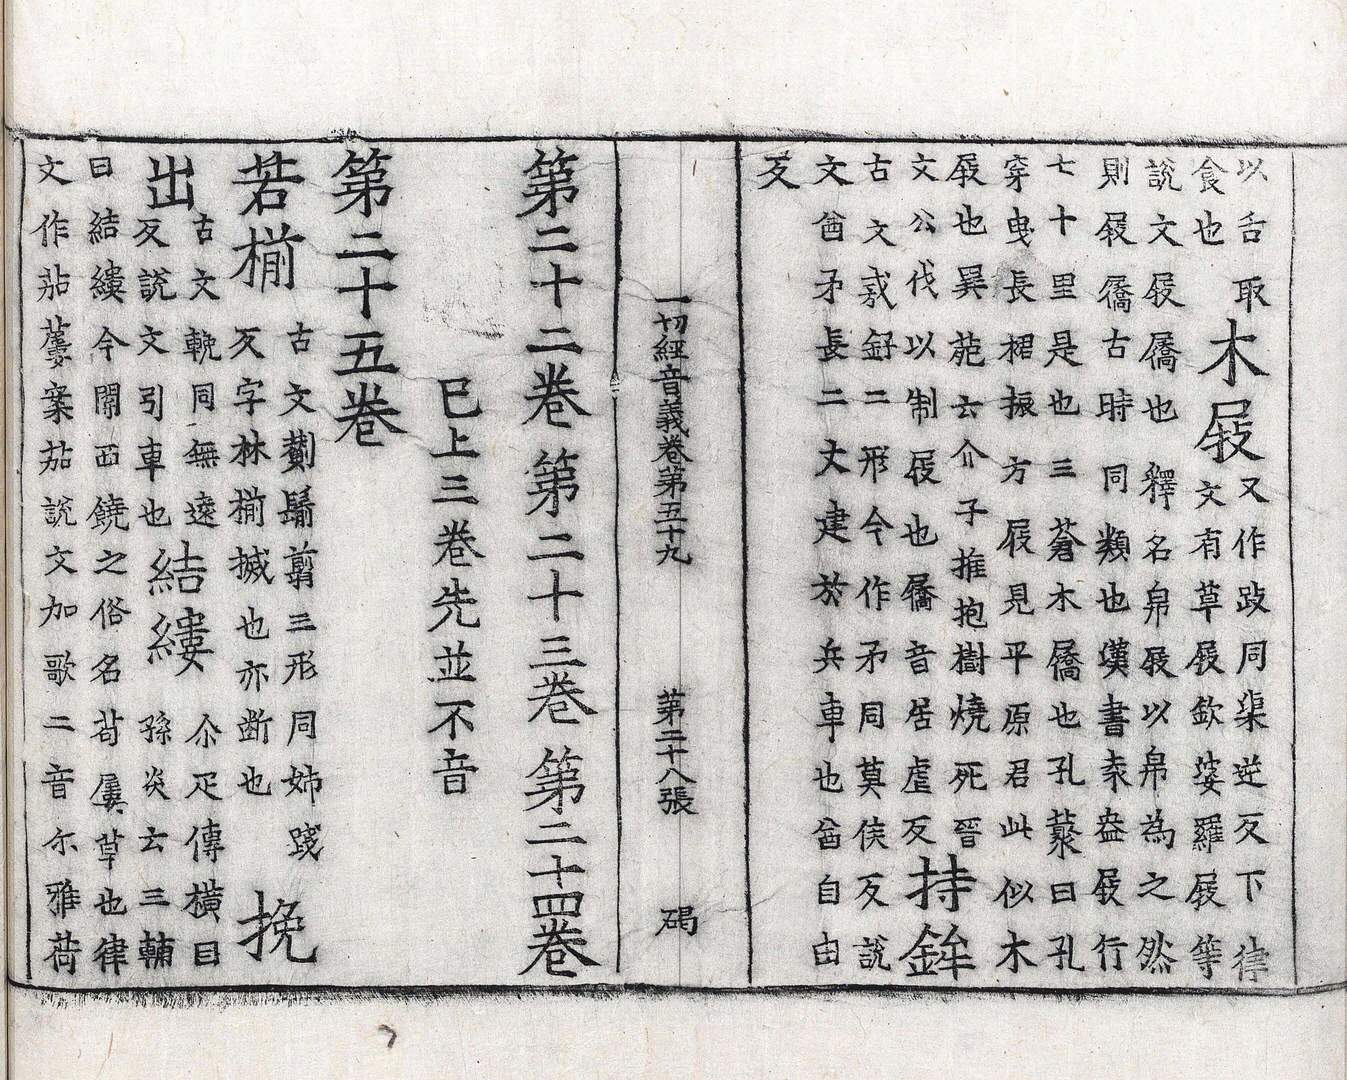 以舌取
食也
木屐
又作跂同渠逆反下律
文有草屐欽婆羅屐等
說文屐屩也釋名帛屐以帛為之然
則屐屩古時同類也漢書袁盎屐行
七十里是也三蒼木屩也孔叢曰孔
穿曳長裾振方屐見平原君此似木
屐也異苑云介子推抱樹燒死晉
文公伐以制屐也屩音居虐反
持鉾
古文𢦧釨二形今作矛同莫侯反說
文酋矛長二丈建於兵車也酋自由
反
一切經音義卷第五十九 第二十八張 碣
第二十二卷 第二十三卷 第二十四卷
已上三卷先並不音
第二十五卷
若揃
古文鬋翦三形同姉踐
反字林揃搣也亦断也
挽
出
古文輓同無遠
反說文引車也
結縷
尒疋傳橫目
孫炎云三輔
曰結縷今關西饒之俗名苟屢草也律
文作蔞案茄說文加歌二音尔雅荷